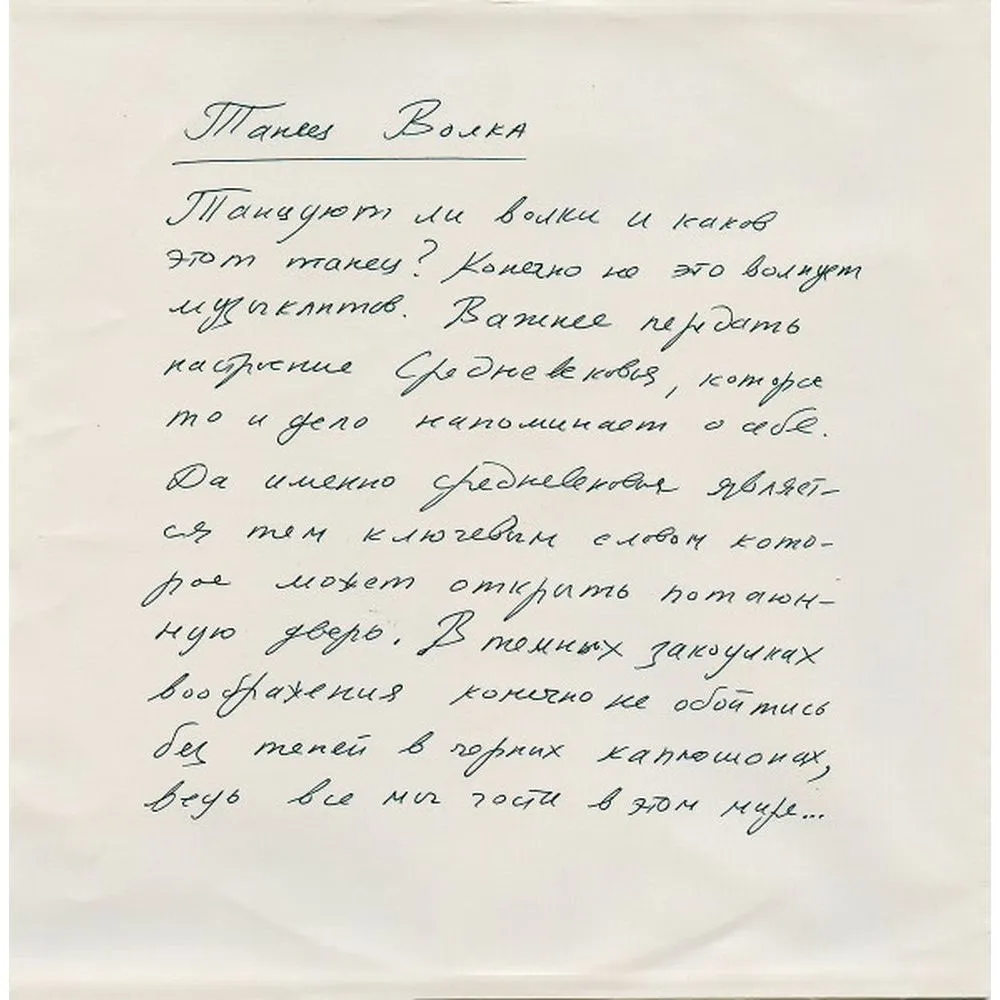 Танец Волка
Танцуют ли волки и каков
этот танец? Конечно не это волнует
музыкантов. Важнее передать
настроение Средневековья, которое
то и дело напоминает о себе.
Да именно средневековья являет-
ся тем ключевым словом кото-
рое может открыть потаён-
ную дверь. В темных закоулках
воображения конечно не обойтись
без теней в чёрных капюшонах,
ведь все мы гости в этом мире...